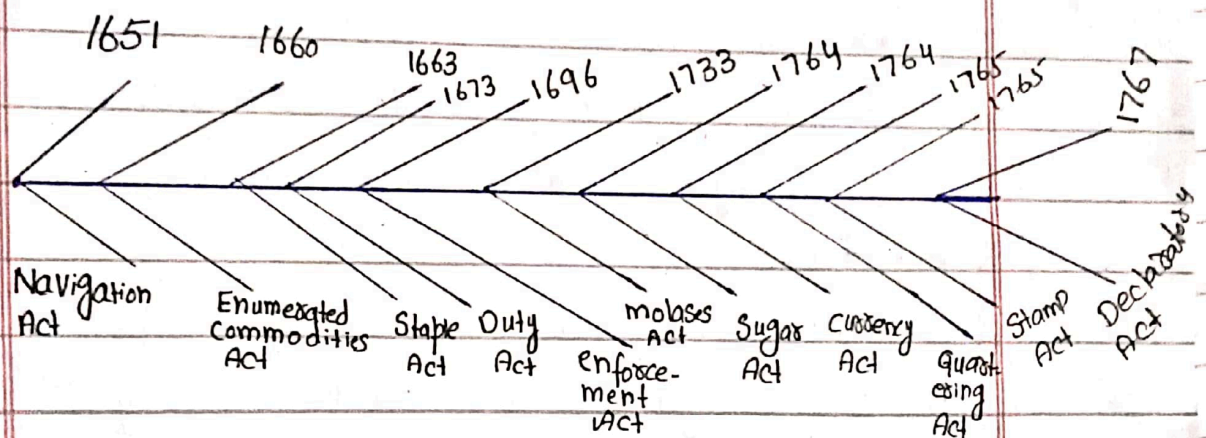 1651
1660
1663
1673
1696
1733
1764
1764
1765
1765
1767
Navigation
Act
Enumerated
commodities
Act
Staple
Act
Duty
Act
enforce-
ment
Act
molases
Act
Sugar
Act
Currency
Act
Quart-
ering
Act
Stamp
Act
Declaratory
Act